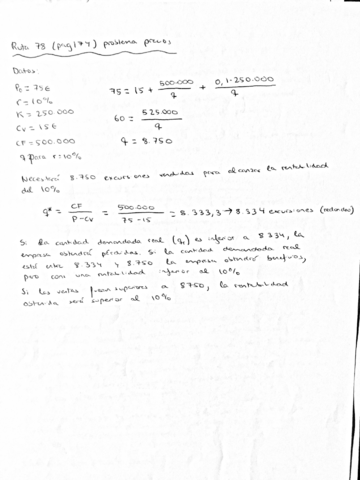 Ruta 78 (pag 174) problema precios
Datos:
P₀ = 75€
r = 10%
K = 250.000
Cv = 15€
CF = 500.000
q para r = 10%
75 = 15 + 500.000/q + 0,1·250.000/q
60 = 525.000/q
q = 8.750
Necesitará 8.750 excursiones vendidas para alcanzar la rentabilidad
del 10%
q* = CF/(P-Cv) = 500.000/(75-15) = 8.333,3 → 8.334 excursiones (redondeo)
Si la cantidad demandada real (q) es inferior a 8.334, la
empresa obtendrá pérdidas. Si la cantidad demandada real
está entre 8.334 y 8.750 la empresa obtendrá beneficios,
pero con una rentabilidad inferior al 10%
Si las ventas fueran superiores a 8750, la rentabilidad
obtenida será superior al 10%